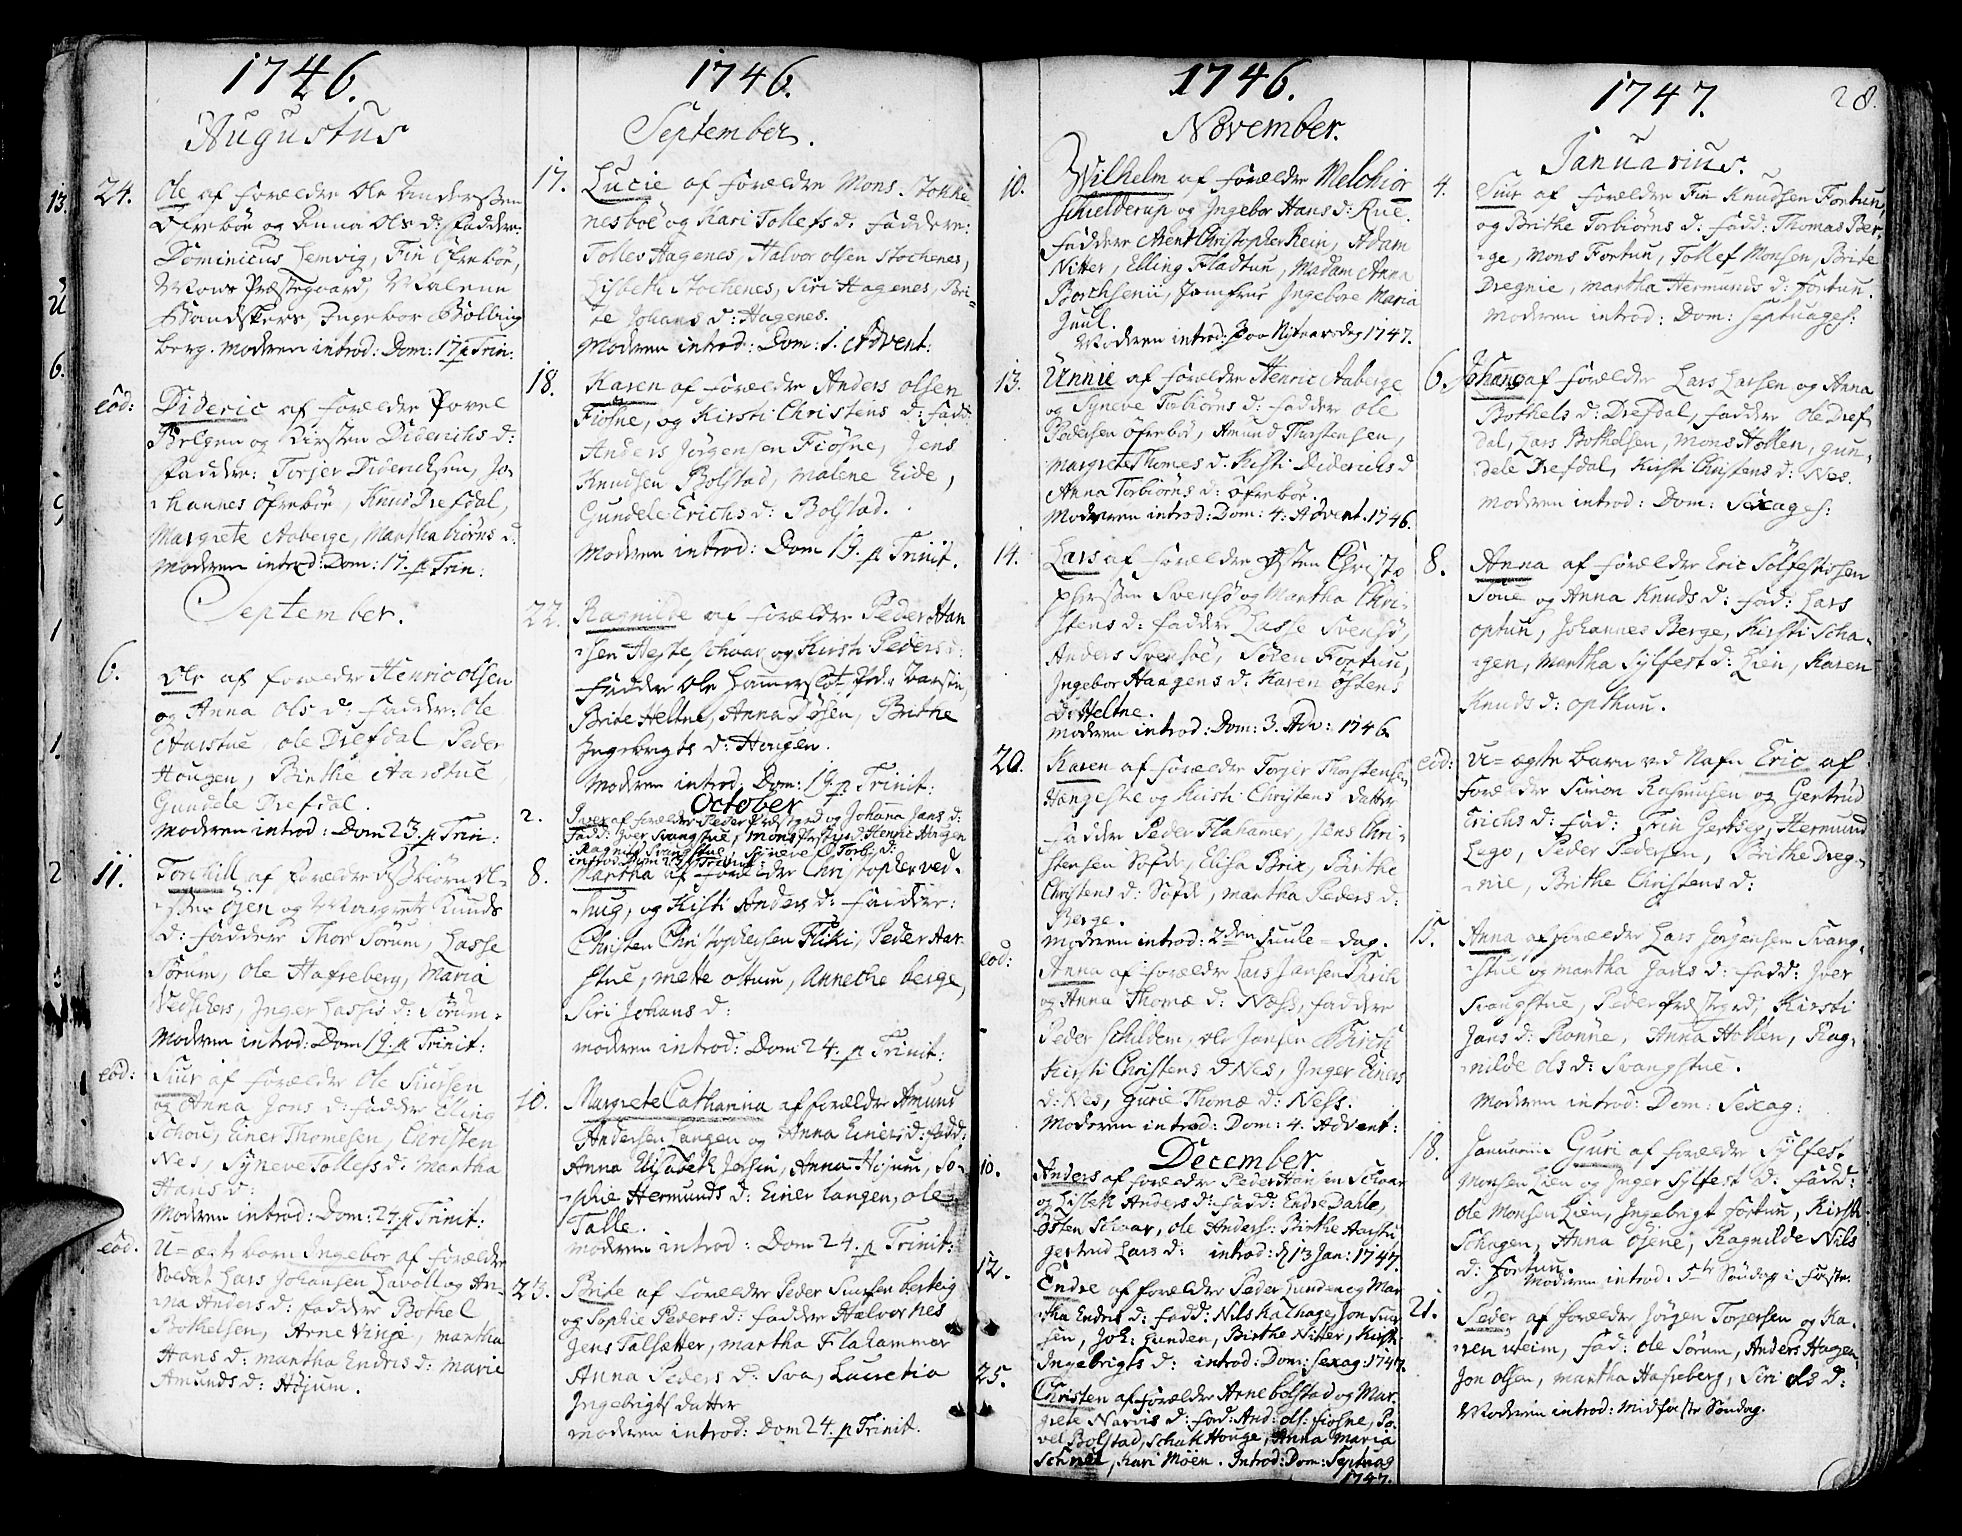 1746.
Augustus
24. Ole af forældre Ole Anderssen
Øfrebøe og Anna Ols d: Faddere:
Dominicus Lemvig, Fin Øfrebøe,
Mons Præstegaard, Malene
Handskers, Ingebor Bølling
berg. Moderen introd: Dom: 17 p Trin:
eod: Dideric af forældre Povel
og Kirsten Diderichs d:
Faddere: Torjer Didericksen, Jo-
hannes Øfrebøe, Knud Drefdal,
Margrete Aaberge, Martha biørns d:
Moderen introd: Dom: 17. p Trin:
September.
6. Ole af forældre Henric olsen
og Anna Ols d: Faddere: Ole
Aarstue, ole Drefdal, Peder
Hougen, Birthe Aarstue,
Gundele Drefdal.
Moderen introd: Dom 23. p Trin:
11. Torchill af Forældre Esbiørn
Øjen og Margrete Knuds
d: faddere Thor Sørum, Lasse
Sørum, Ole Hafreberg, Maria
Inger Lassis d: Sørum.
Moderen introd: Dom 19. p Trinit:
eod: Siur af forældre Ole Siursen
og Anna Jons d: faddere Elling
Schou, Einer Thomesen, Christen
Nes, Syneve Tollefs d: Martha
Hans d:
Moderen introd: Dom: 24 p Trinit:
eod. U=ægte barn Ingebor af forældre
Soldat Lars Johansen Lavoll og An-
na Anders d: faddere Bothel
Bothelsen, Arne Vinje, Martha
Hans d: Martha Endris d: Marie
Amunds d: Højum.
1746.
September.
17. Lucie af forældre Mons Stokke
nesbøe og Kari Tollefs d: faddere:
Tolles Hagenes, Halvor olsen Stochenes,
Lisbeth Stochenes, Siri Hagenes, Bri-
te Johans d: Hagenes.
Moderen introd: Dom: 1. Advent:
18. Karen af forældre Anders olsen
Fiøsne, og Kirsti Christens d: fadd:
Anders Jørgensen Fiøsne, Jens
Knudsen Bolstad, Malene Eide,
Gundele Erichs d: Bolstad.
Moderen introd: Dom 19. p Trinit.
22. Ragnilde af forældre Peder Han
sen Heste, schaar og Kirsti Peders d:
Faddere Ole Hamerslot, Ped:
Brite Heltne, Anna Døsen, Brithe
Ingebrigts d: Hougen.
Moderen introd: Dom: 19. p Trinit:
October
2. Iver af forældre Peder Præstgrd og Johana Jans d:
fadd: Iver Svangstue, Mons Præstgrd, Henric Haugen
Ragnild Svangstue, Syneve Torb: d:
introd: Dom 23. p Trinit:
8. Martha af forældre Christopher ved-
hug, og Kisti Anders d: faddere:
Christen Christophersen Fliki, Peder Aar-
stue, Mette ottum, Annethe berge,
Siri Johans d:
Moderen introd: Dom 24. p Trinit:
10. Margrete Catharina af forældre Amund
Andersen Langen og Anna Einers d: fadd:
Anna Elisabeth Jersin, Anna Højum, So-
phie Hermunds d: Einer Langen, ole
Talle.
Moderen introd: Dom 24. p Trinit:
23. Brite af forældre Peder Siursen berkeig
og Sophie Peders d: faddere Halvor nes
Jens Talsætter, Martha Flahammer
Anna Peders d: Sva, Lucretia
Ingebrigts datter
Moderen introd: Dom 24. p Trinit.
1746.
November.
10. Wilhelm af forældre Melchior
Schielderup og Ingebor Hans d: Rue.
faddere Christopher Rein, Adam
Nitter, Elling Fladtun, Madam Anna
Borchsenii, Jomfrue Ingebore Maria
Juul.
Moderen introd: Paa Nytaarsdag 1747.
13. Unnie af forældre Henric Aaberge
og Syneve Torbiørns d: faddere Ole
Pedersen Øfrebøe, Amund Thorstensen,
Margrete Thomes d. Kisti Diderichs d
Anna Torbiørns d: Øfrebøe.
Moderen introd: Dom: 4. Advent. 1746.
14. Lars af forældre Østen Christo
phersen Svensøe og Martha Chri-
stens d: faddere Lasse Svensøe,
Anders Svensøe, Søren Fortun,
Ingebor Haagens d: Karen Østens
d: Heltne.
Moderen introd: Dom: 3. Adv: 1746
20. Karen af forældre Torjer Thorstensen
Hængeste og Kirsti Christens datter
faddere Peder Flahamer, Jens Chri-
stensen Søfde, Elisa Brix, Birthe
Christens d: Søfde, Martha Peders d:
Berge.
Moderen introd: 2den Juule=dag.
eod: Anna af forældre Lars Jansen
og Anna Thomæ d: Næss, faddere
Peder Schilden, ole Jansen
Kirsti Christens d Nes, Inger Einers
d: Nes, Gurie Thomæ d: Ness.
Moderen introd: Dom: 4. Advent:
December
10. Anders af forældre Peder Hansen Schaar
og Lisbeth Anders d: fadd: Endre Dahle,
Østen Schaar, ole Anders: Birthe Aarstu,
Gertrud Lars d: introd: d 13 Jan: 1747.
12. Endre af forældre Peder Lunden og Mar
tha Endris d: fadd: Nils Kalhage, Jon Siur
sen, Joh: Lunden, Birthe Nitter, Kirsti
Ingebrigts d: introd: Dom: Sexag 1747.
25. Christen af forældre Arne Bolstad og Mar-
grete Narvis d: fad: And: Ols: fiøsne, Po-
vel Bolstad, Schak Houge, Anna Maria
Schnel, Kari Moen. Introd: Dom: Septuag
1747.
1747.
28.
Januarius.
4. Siur af forældre Fin Knudsen Fortun,
og Brithe Torbiørns d: fadd: Thomas Ber-
ge, Mons Fortun, Tollef Monsen, Brite
Dregnie, Martha Hermunds d: fortun.
Moderen introd: Dom: Septuages:
6. Johans af forældre Lars Larsen og Anna
Bothels d: Drefdal, faddere Ole Dref
dal, Lars Bothelsen, Mons Holken, Gun-
dele Drefdal, Kirsti Christens d: Nes.
Moderen introd: Dom: Sexages:
8. Anna af forældre Eric Sølfestissen
Soue og Anna Knuds d: fad: Lars
optun, Johannes Berge, Kirsti Scha-
gen, Martha Sylfest d: Lien, Karen
Knuds d: opthun.
eod: U=ægte barn ved Nafn Eric af
forældre Simon Rasmusen og Gertrud
Erichs d: fad: Fin Gerde, Hermund
Lego, Peder Pedersen, Brithe Dreg-
nie, Brithe Christens d:
15. Anna af forældre Lars Jørgensen Svang-
stue og Martha Jans d: fadd: Iver
Svangstue, Peder Præstgrd, Kirsti
Jans d: Rønne, Anna Holken, Rag-
nilde Ols d: Svangstue.
Moderen introd: Dom: Sexag:
18. Januarii Guri af forældre Sylfest
Monsen Lien og Inger Sylfest d: fadd:
Ole Monsen Lien, Ingebrigt Fortun, Kirsti
Schagen, Anna Øjene, Ragnilde Nils
d: Fortun.
Moderen introd. 5te Søndag i faste.
21. Peder af forældre Jørgen Torjersen og Ka-
ren Ueim, fad: Ole Sørum, Anders Hagen,
Jon olsen, Martha Hafreberg, Siri Ols d:
Moderen introd: Midfaste Søndag.